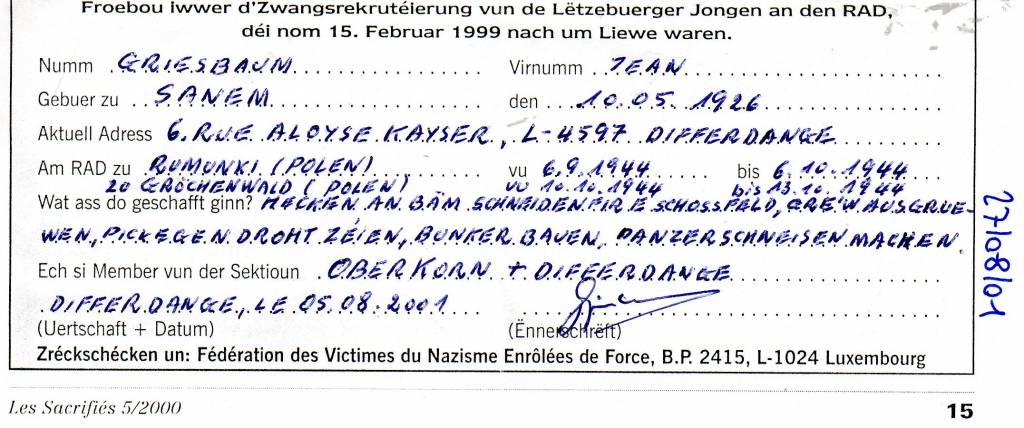 Froebou iwwer d'Zwangsrekrutéierung vun de Lëtzebuerger Jongen an den RAD,
déi nom 15. Februar 1999 nach um Liewe waren.
Numm GRIESBAUM Virnumm JEAN
Gebuer zu SANEM den 10.05.1926
Aktuell Adress 6, RUE ALOYSE KAYSER, L-4597 DIFFERDANGE
Am RAD zu RUMUNKI (POLEN) vu 6.9.1944 bis 6.10.1944
20 GRÖCHENWALD (POLEN) vu 10.10.1944 bis 13.10.1944
Wat ass do geschafft ginn? HECKEN AN BÄM SCHNEIDEN FIR E SCHOSSFELD, GRE'W AUSGRUE-
WEN, PICKEGEN DROHT ZÉIEN, BUNKER BAUEN, PANZERSCHNEISEN MACHEN.
Ech si Member vun der Sektioun OBERKORN + DIFFERDANGE
DIFFERDANGE, LE 05.08.2001
(Uertschaft + Datum) (Ënnerschrëft)
Zréckschécken un: Fédération des Victimes du Nazisme Enrôlées de Force, B.P. 2415, L-1024 Luxembourg
27/08/01
Les Sacrifiés 5/2000 15